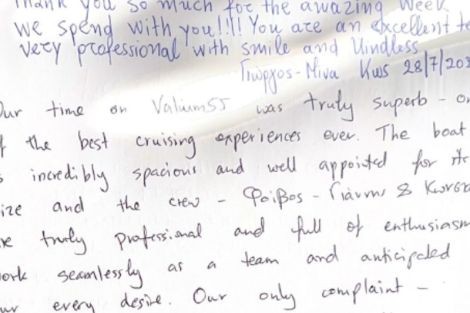 Thank you so much for the amazing week
we spend with you!!!! You are an excellent te
very professional with smile and kindless
Γιώργος - Νίνα Κως 28/7/20
Our time on Valium55 was truly superb - on
f the best cruising experiences ever. The boat
s incredibly spacious and well appointed for its
ize and the crew - Φοίβος - Γιάννη & Κωνστα
re truly professional and full of enthusiasm
ork seamlessly as a team and anticipated
ur every desire. Our only complaint -